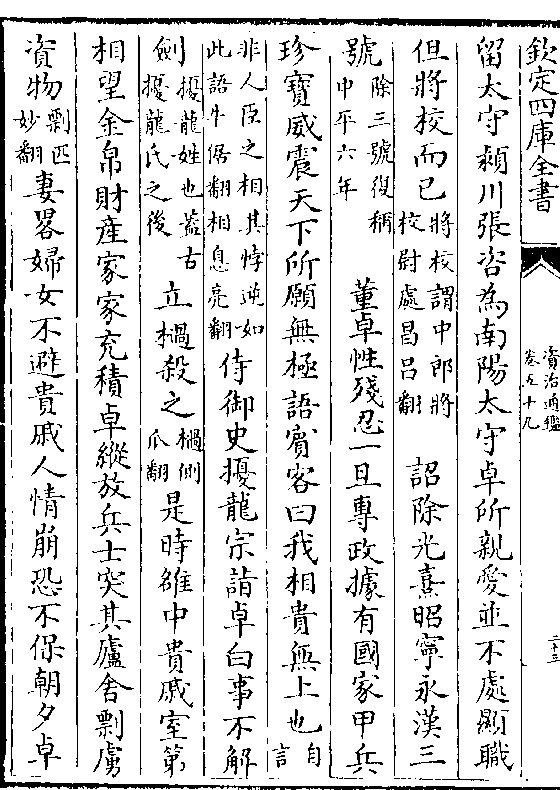 欽定四庫全書
資治通鑑
卷五十九
二十三
留太守潁川張咨為南陽太守卓所親愛並不處顯職
但將校而已將校謂中郎將校尉處昌吕翻 詔除光熹昭寧永漢三
號除三號復稱中平六年 董卓性殘忍一旦專政據有國家甲兵
珍寶威震天下所願無極語賓客曰我相貴無上也自言
非人臣之相其悖逆如此語牛倨翻相息亮翻侍御史擾龍宗詣卓白事不解
劍擾龍姓也蓋古擾龍氏之後立檛殺之檛側瓜翻是時雒中貴戚室第
相望金帛財産家家充積卓縱放兵士突其廬舍剽虜
資物剽匹妙翻妻畧婦女不避貴戚人情崩恐不保朝夕卓